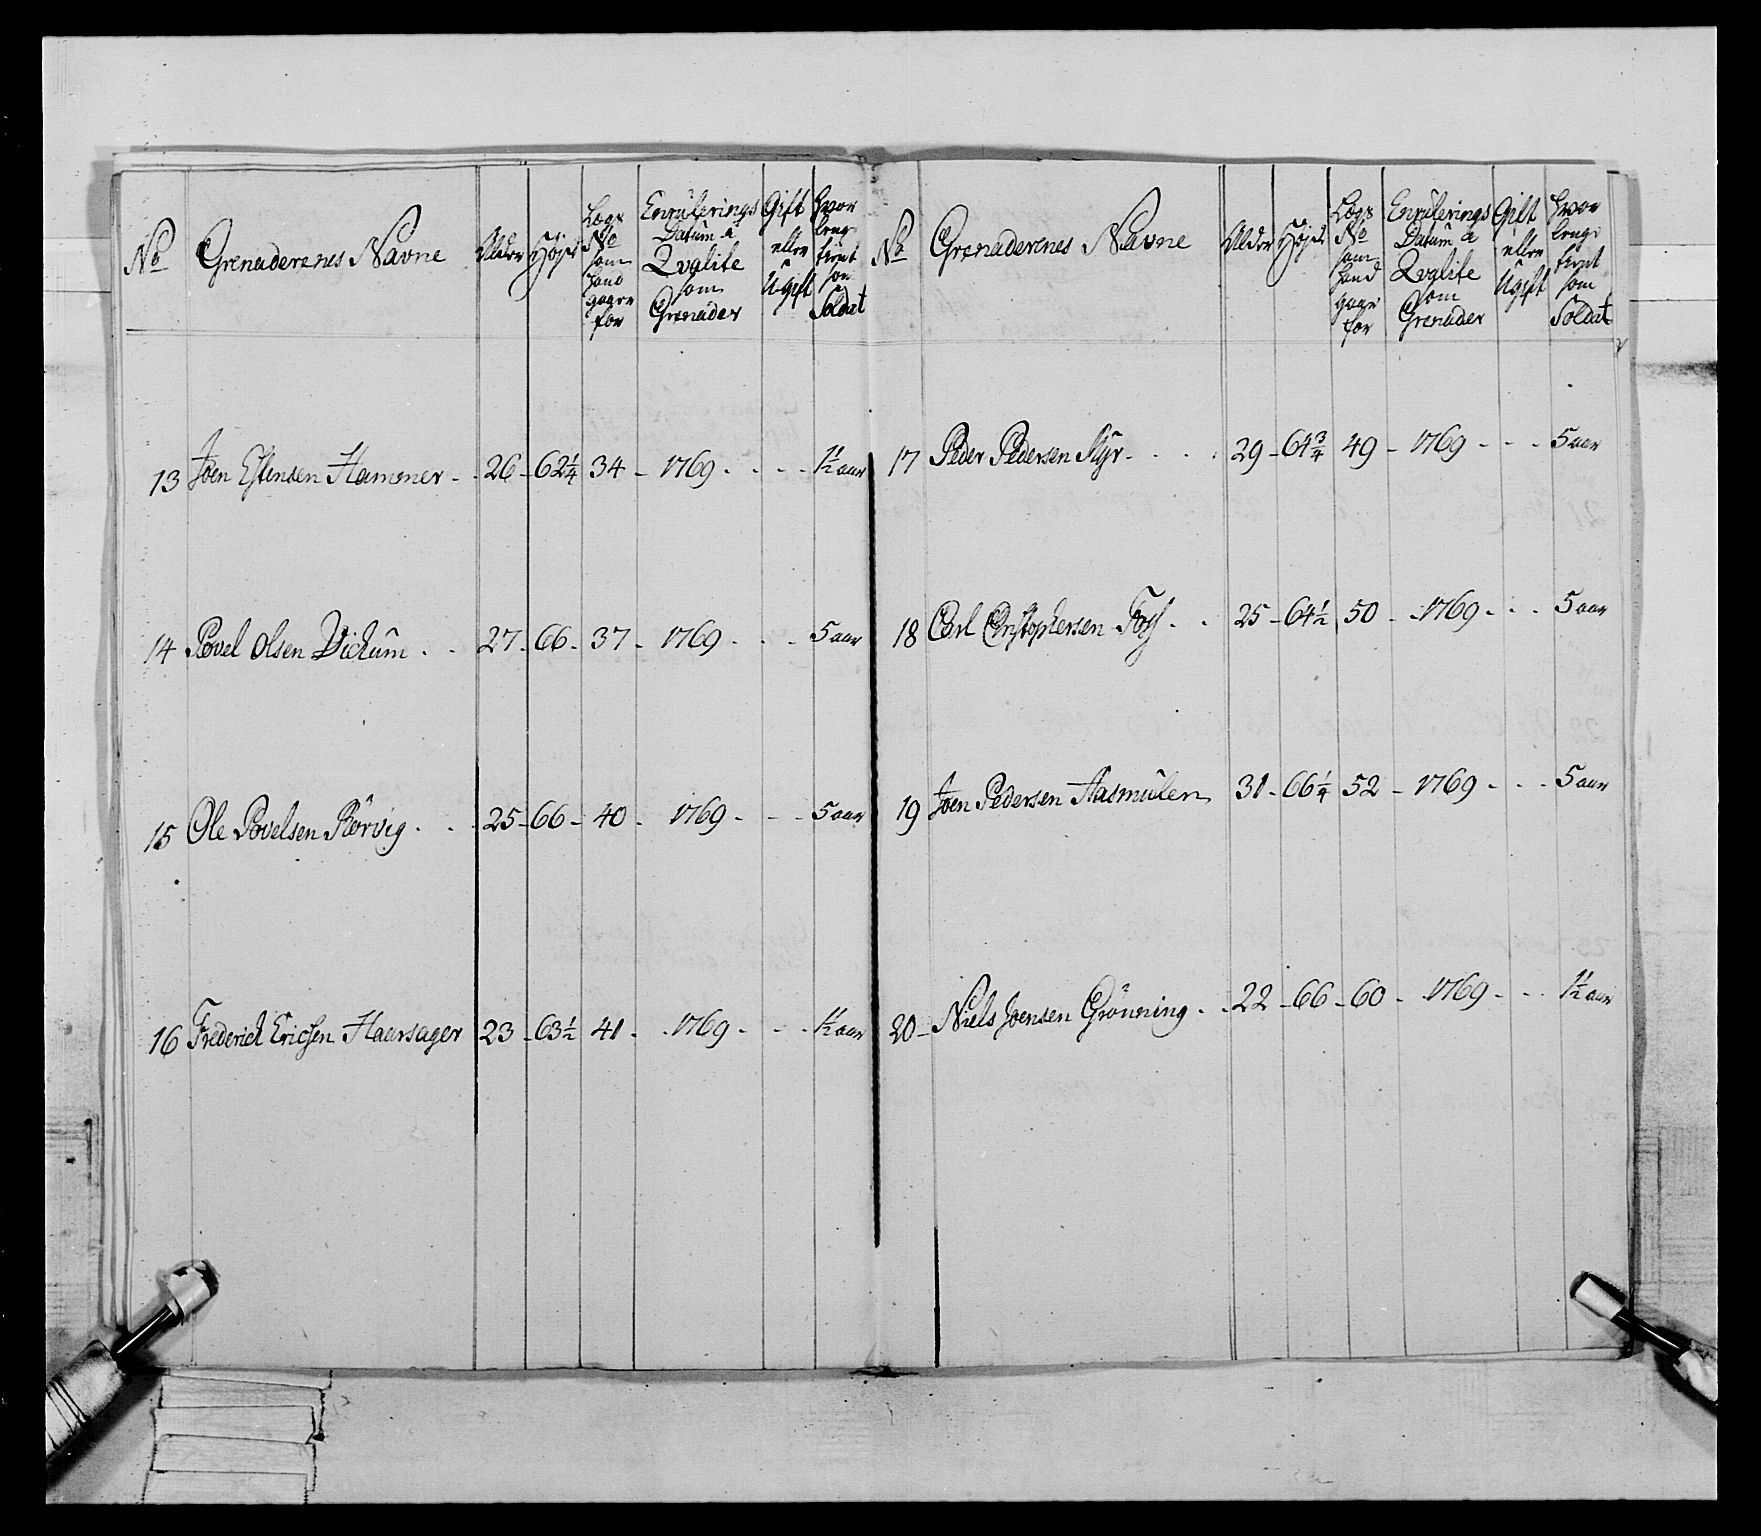 No
Grenaderenes Navne
Alder
Høyde
Lægs No som hand gaaer for
Enrulerings Datum à Qvalite som Grenader
Gift eller Ugift
hvor lenge tient som Soldat
13 Joen Estensen Hammer - 26 - 62 1/4 34 - 1769 - - - 1 1/2 aar
14 Povel Olsen Vickum . . 27 - 66 - 37 - 1769 - - - 5 aar
15 Ole Povelsen Rørvig . . 25 - 66 - 40 - 1769 - - - 5 aar
16 Frederich Ericsen Haarsager 23 - 63 1/2 41 - 1769 - - - 1 1/2 aar
No
Grenaderenes Navne
Alder
Høyde
Lægs No som hand gaaer for
Enrulerings Datum à Qvalite som Grenader
Gift eller Ugift
hvor lenge tient som Soldat
17 Peder Pedersen Myr - . . . 29 - 64 3/4 49 - 1769 - - - 5 aar
18 Carl Christophersen . . 25 - 64 1/2 50 - 1769 - - - 5 aar
19 Joen Pedersen Aasmulen 31 - 66 1/4 52 - 1769 - - - 5 aar
20 - Niels Joensen Grønning . . 22 - 66 - 60 - 1769 - - - 1 1/2 aar